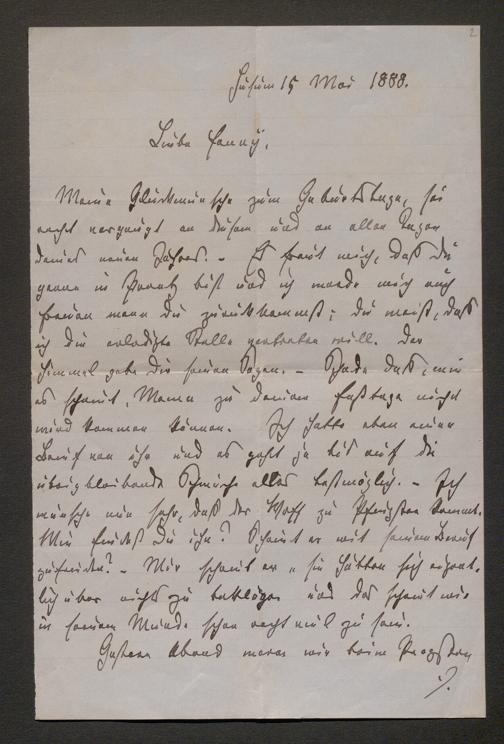 2
Husum 15 Mai 1888.
Liebe Fanny,
Meine Glückwünsche zum Geburtstage, sei
recht vergnügt an diesem und an allen Tagen
deines neuen Jahres. – Es freut mich, daß Du
gerne in Preetz bist und ich werde mich auch
freuen wenn Du zurückkommst; Du weißt, daß
ich die erledigte Stelle vertreten will. Der
Himmel gebe Dir seinen Segen. – Schade daß, wie
es scheint, Mama zu deinem Festtage nicht
wird kommen können. Ich hatte eben einen
Brief von ihr und es geht ja bis auf die
übrigbleibende Schwäche alles bestmöglich. – Ich
wünsche nun sehr, daß der Wolff zu Pfingsten kommt.
Wie findest Du ihn? Scheint er mit seinem Beruf
zufrieden? – Mir schreibt er „sie hätten sich eigent-
lich über nichts zu beklagen und das scheint mir
in seinem Munde schon recht viel zu sein.
Gestern Abend waren wir beim Propsten